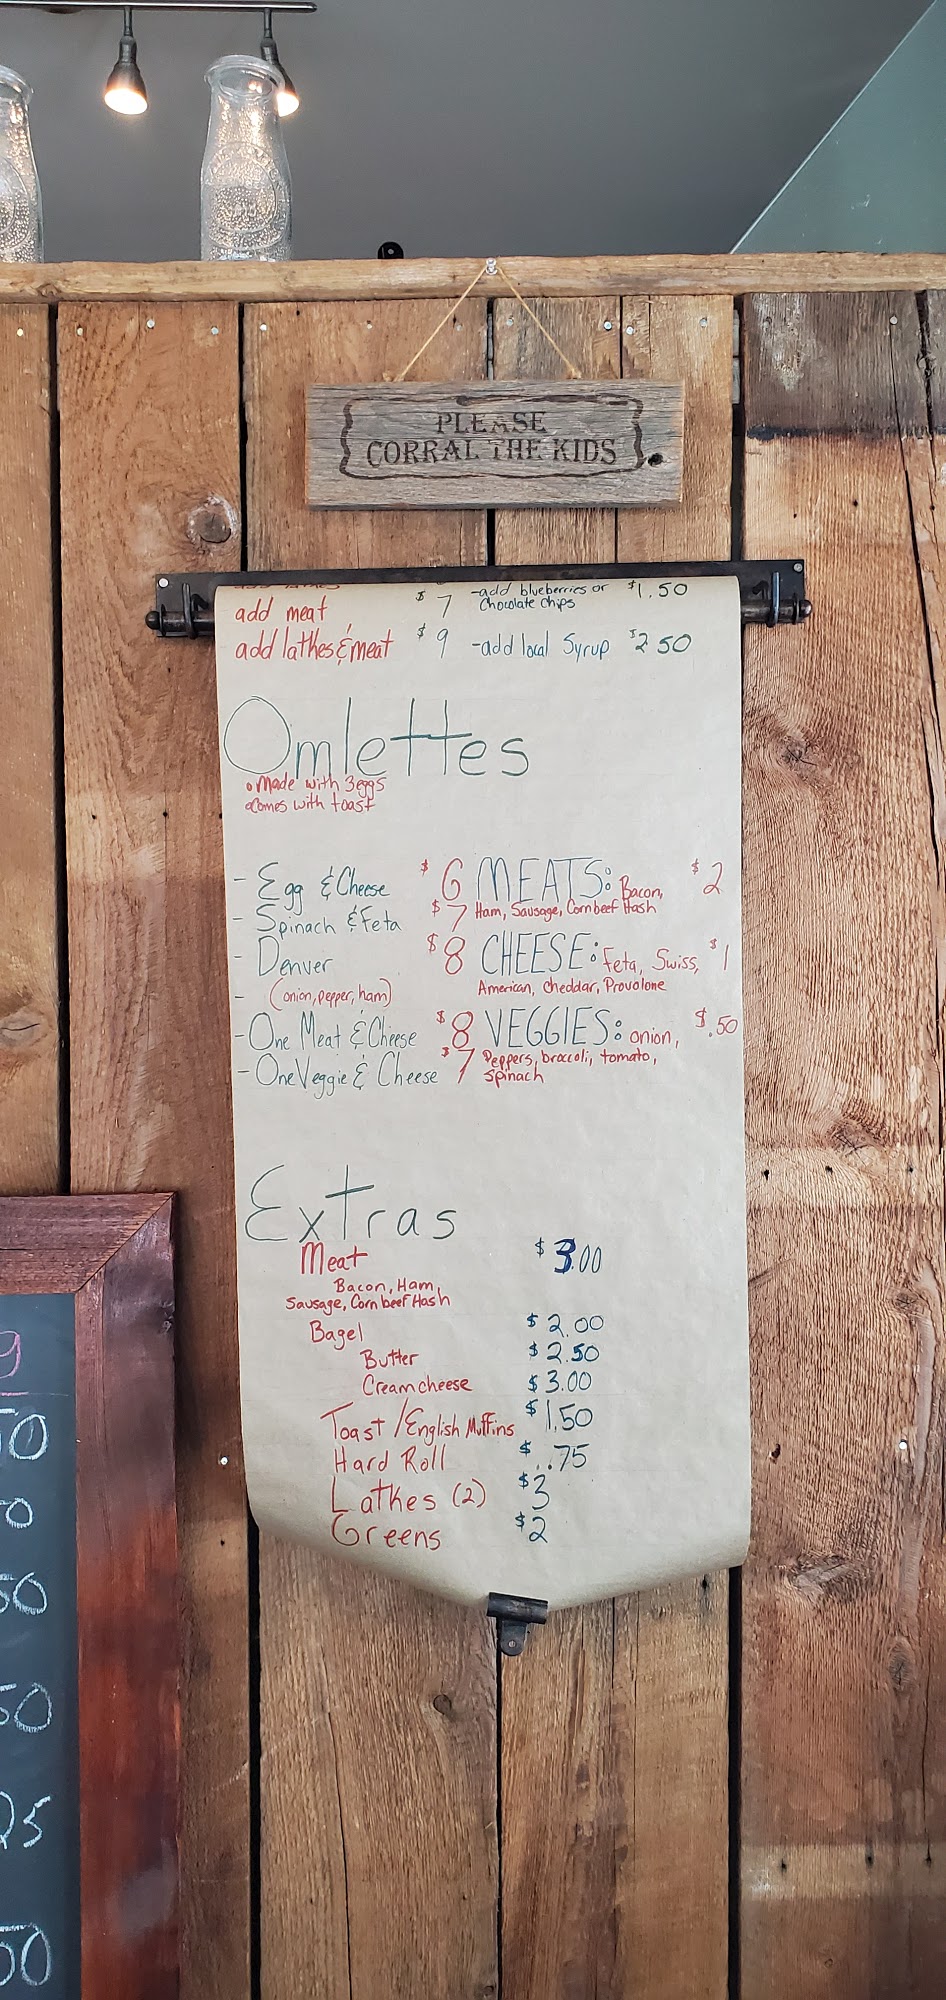 PLEASE
CORRAL THE KIDS
add meat $7 -add blueberries or $1.50
Chocolate chips
add lathes & meat $9 -add local Syrup $2.50
Omlettes
• Made with 3 eggs
• Comes with toast
- Egg & Cheese $6 MEATS: Bacon, $2
- Spinach & Feta $7 Ham, Sausage, Corn beef Hash
- Denver $8 CHEESE: Feta, Swiss, $1
- (onion, pepper, ham) American, cheddar, Provolone
- One Meat & Cheese $8 VEGGIES: onion, $.50
- One Veggie & Cheese $7 Peppers, broccoli, tomato,
Spinach
Extras
Meat $3.00
Bacon, Ham,
Sausage, Corn beef Hash
Bagel $2.00
Butter $2.50
Cream cheese $3.00
Toast / English Muffins $1.50
Hard Roll $..75
Lathes (2) $3
Greens $2
9
50
0
50
50
25
00